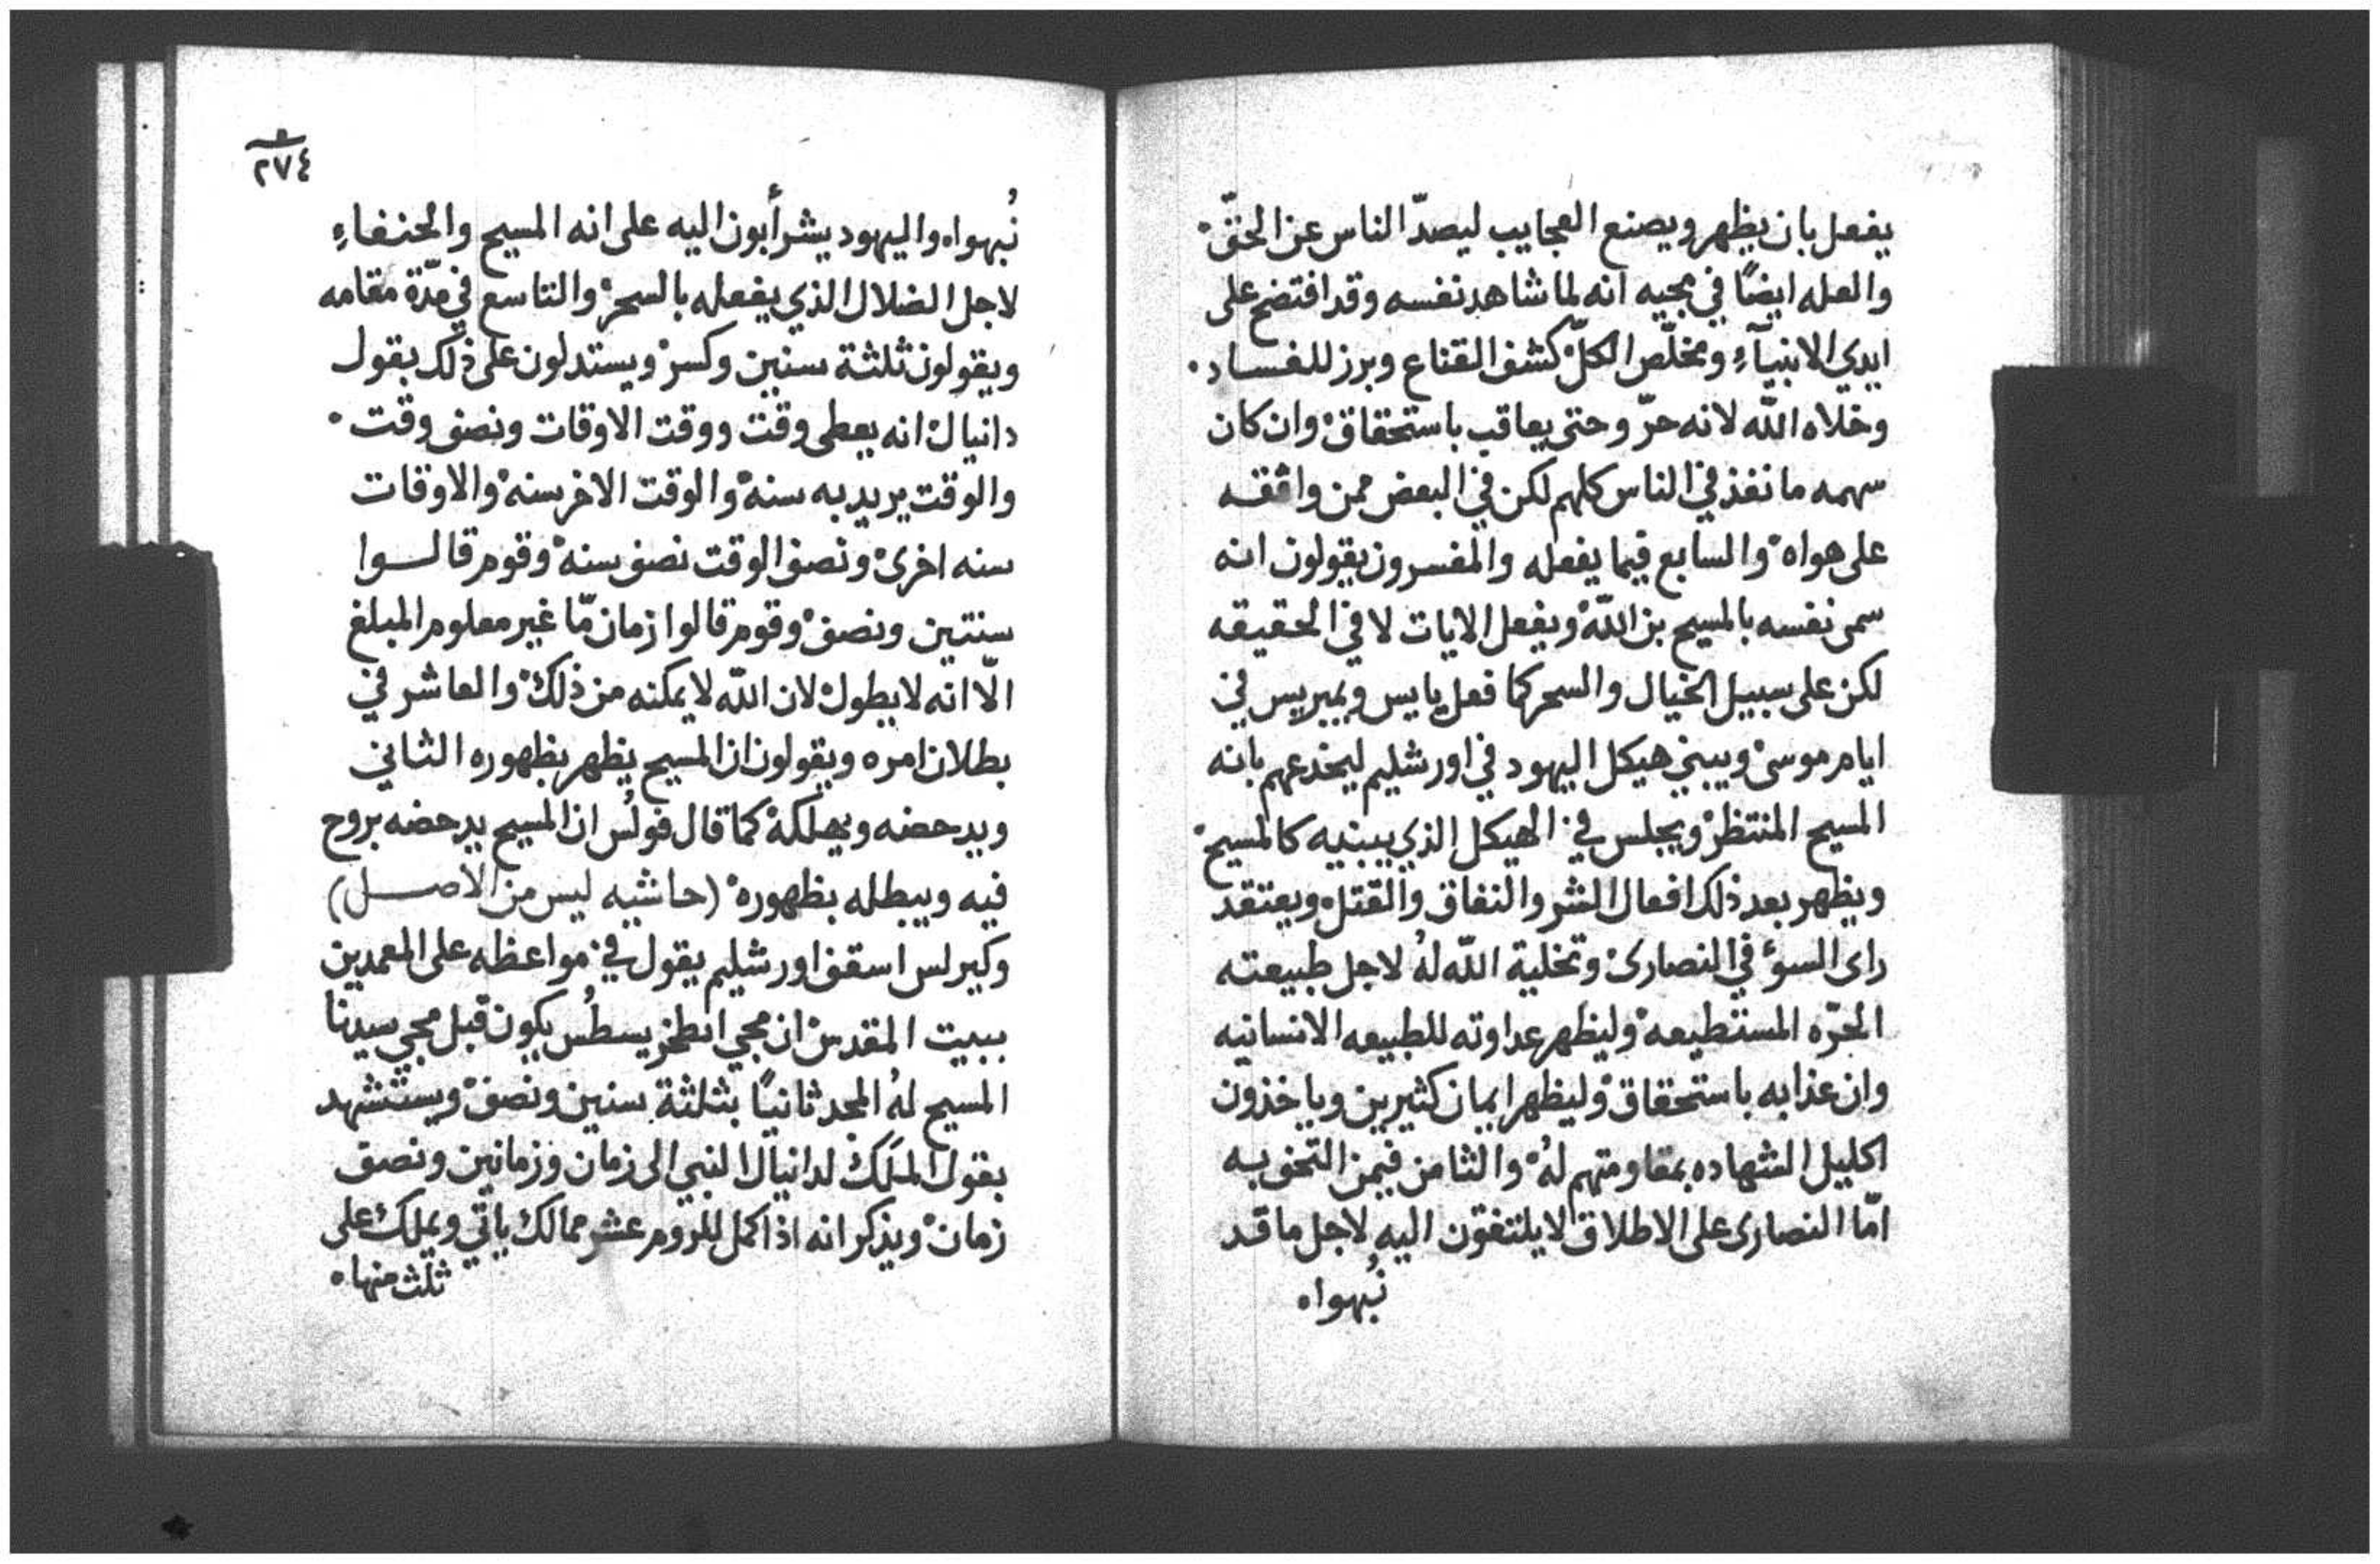 يفعل بان يظهر ويصنع العجايب ليصدّ الناس عن الحقّ ۰
والعله ايضًا في مجيه انه لما شاهد نفسه وقد افتضح على
ايدي الانبيآءِ ومخلّص الكلّ كشف القناع وبرز للفساد ۰
وخلاه اللّه لانه حرّ وحتى يعاقب باستحقاق ۰ وان كان
سهمه ما نفذ في الناس كلهم لكن في البعض ممن وافقه
على هواه ۰ والسابع فيما يفعله والمفسرون يقولون انه
سمى نفسه بالمسيح بن اللّه ۰ ويفعل الايات لا في الحقيقه
لكن على سبيل الخيال والسحر كما فعل يايس ويمبريس في
ايام موسى ۰ ويبني هيكل اليهود في اورشليم ليخدعهم بانه
المسيح المنتظر ۰ ويجلس في الهيكل الذي يبنيه كالمسيح ۰
ويظهر بعد ذلك افعال الشر والنفاق والقتل ۰ ويعتقد
راى السوء في النصارى ۰ وتخلية اللّه لهُ لاجل طبيعته
الحرّه المستطيعه ۰ وليظهر عداوته للطبيعه الانسانيه
وان عذابه باستحقاق ۰ وليظهر ايمان كثيرين وياخذون
اكليل الشهاده بمقاومتهم لهُ ۰ والثامن فيمن التحف به
امّا النصارى على الاطلاق لا يلتفتون اليه لاجل ما قد
نُبهوا ۰
٢٧٤
نُبهوا ۰ واليهود يشرأبون اليه على انه المسيح والحنفاءِ
لاجل الضلال الذي يفعله بالسحر ۰ والتاسع في مدّة مقامه
ويقولون ثلثة سنين وكسر ۰ ويستدلون على ذلك بقول
دانيال ۰ انه يعطى وقت ووقت الاوقات ونصف وقت ۰
والوقت يريد به سنه ۰ والوقت الاخر سنه ۰ والاوقات
سنه اخرى ۰ ونصف الوقت نصف سنه ۰ وقوم قالوا
سنتين ونصف ۰ وقوم قالوا زمان مّا غير معلوم المبلغ
الّا انه لا يطول ۰ لان اللّه لا يمكنه من ذلك ۰ والعاشر في
بطلان امره ويقولون ان المسيح يظهر بظهوره الثاني
ويدحضه ويهلكه ۰ كما قال فولُس ان المسيح يدحضه بروح
فيه ويبطله بظهوره ۰ (حاشيه ليس من الاصل)
وكيرلس اسقف اورشليم يقول في مواعظه على المعمدين
ببيت المقدس ۰ ان مجي انطخريسطُس يكون قبل مجي سيدنا
المسيح لهُ المجد ثانيًا بثلثة سنين ونصف ۰ ويستشهد
بقول الملَك لدانيال النبي الى زمان وزمانين ونصف
زمان ۰ ويذكر انه اذا كمل للروم عشر ممالك ياتي ويملك على
ثلث منها ۰